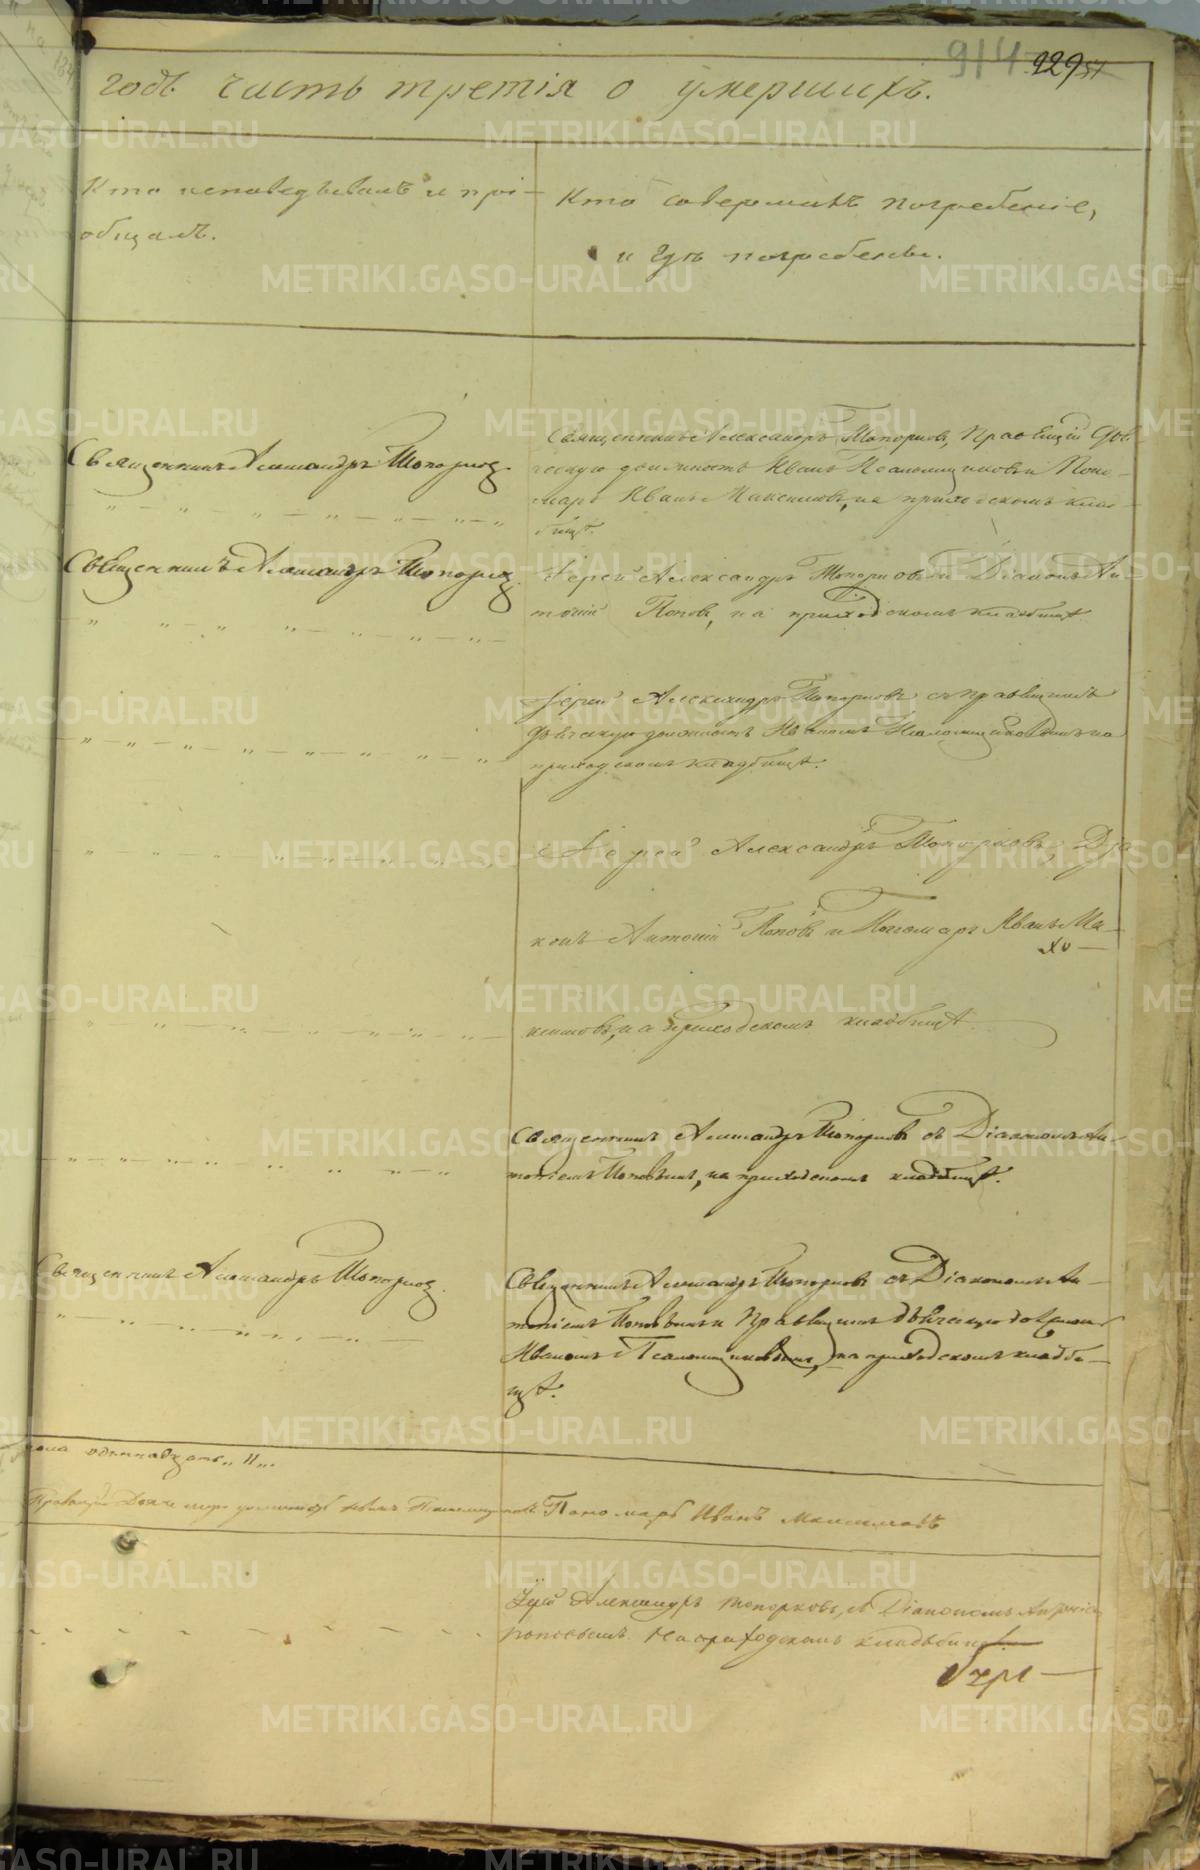 914 929 51
годъ часть третія о умершихъ.
Кто исповедывалъ и прі-
общалъ.
Кто совершалъ погребеніе,
и гдѣ погребены.
Священникъ Александръ Топорков.
Священникъ Александръ Топорковъ, Правящій Дья-
ческую должность Иванъ Псаломщиковъ и Поно-
марь Иванъ Максимовъ, на приходскомъ клад-
бищѣ.
Священникъ Александръ Топорков.
Іерей Александръ Топорковъ и Діаконъ Ан-
тоній Поповъ, на приходскомъ кладбищѣ
Іерей Александръ Топорковъ съ правящимъ
дьяческую должность Иваномъ Псаломщиковымъ на
приходскомъ кладбищѣ.
Іерей Александръ Топорковъ, Діа
конъ Антоній Поповъ и Пономарь Иванъ Ма-
ксимовъ, на приходскомъ кладбищѣ
Священникъ Александръ Топорковъ съ Діакономъ Ан-
тоніемъ Поповымъ, на приходскомъ кладбищѣ.
Священникъ Александръ Топорков.
Священникъ Александръ Топорковъ съ Діакономъ Ан-
тоніемъ Поповымъ и Правящимъ дьяческую должн.
Иваномъ Псаломщиковымъ, на приходскомъ кладби-
щѣ.
пола одиннадцать „11„.
Правящій Дьяческую должность Иванъ Псаломщиковъ Пономарь Иванъ Максимовъ
Іерей Александръ Топорковъ, съ Діакономъ Антоніем
Поповымъ на приходскомъ кладьбище.